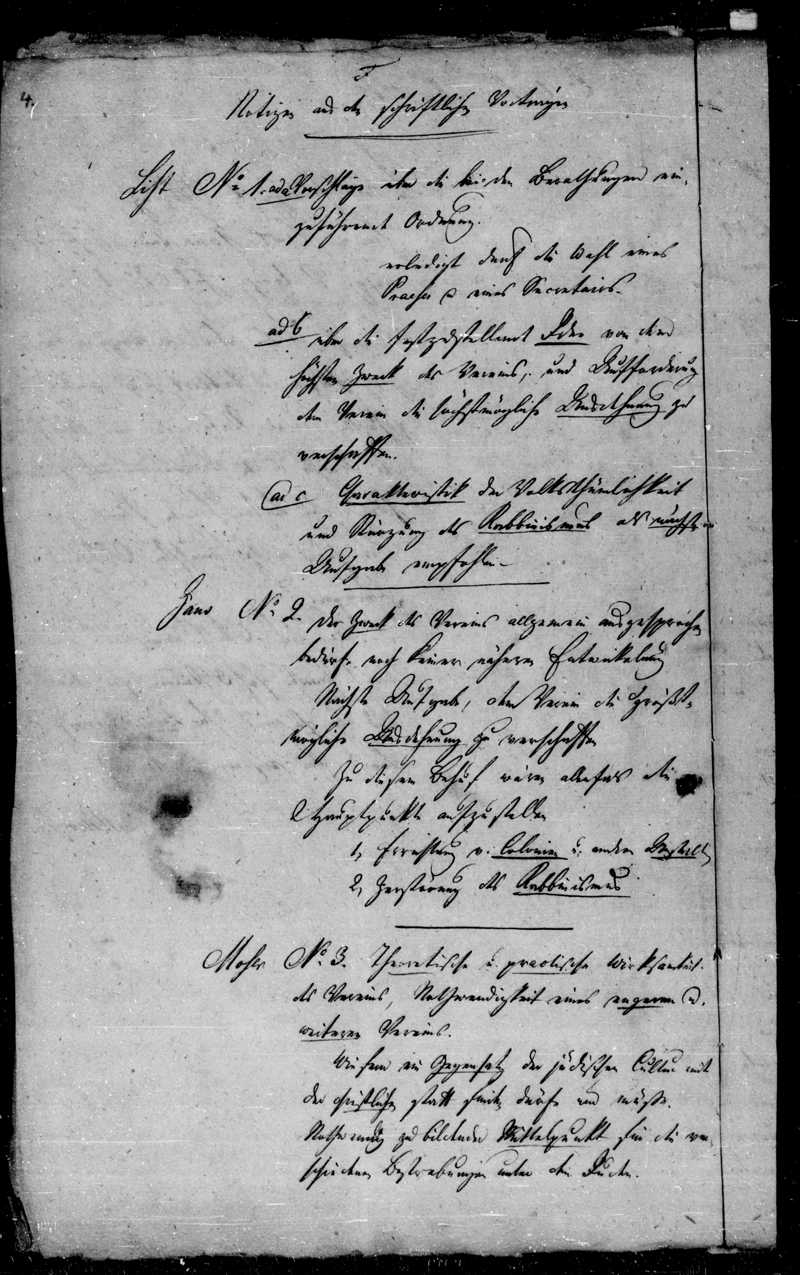 4.
Notizen aus den schriftlichen Vorträgen
List No 1. ad a Vorschläge über die bei den Berathungen ein-
zuführende Ordnung.
erledigt durch die Wahl eines
Praeses u eines Secretairs.
ad b über die festzustellende Idee von dem
höchsten Zweck des Vereins, und Aufforderung
dem Verein die höchstmögliche Ausdehnung zu
verschaffen.
ad c Charakteristik der Volksthümlichkeit
und Stürzung des Rabbinismus als nächste
Aufgabe empfohlen
Gans No 2. Der Zweck des Vereins allgemein ausgesprochen
bedürfe noch keiner nähern Entwickelung
Nächste Aufgabe, dem Verein die größt-
mögliche Ausdehnung zu verschaffen
Zu diesem Behuf wären die
2 Hauptpunkte aufzustellen
1, Errichtung v. Colonien u. andern Anstalten
2, Zerstörung des Rabbinismus
Moser No 3. Theoretische u. practische Wirksamkeit
des Vereins, Nothwendigkeit eines engeren u.
weiteren Vereins.
Wiefern ein Gegensatz der jüdischen Cultur mit
der christlichen statt finde, dürfe und müsse.
zu bildender Mittelpunkt für die ver-
schiedenen Bestrebungen unter den Juden.